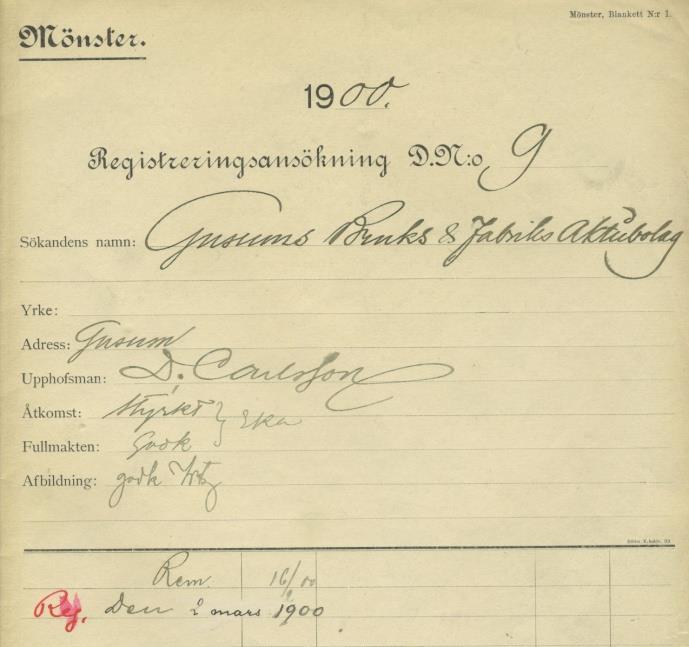 Mönster, Blankett N:r 1.
Mönster.
1900.
Registreringsansökning D.N:o 9
Sökandens namn: Gusums Bruks & Fabriks Aktiebolag
Yrke:
Adress: Gusum
Upphofsman: D. Carlsson
Åtkomst: styrkt
Fullmakten: godk
Afbildning: godk
Rem. 16/2 00
Reg. den 2 mars 1900